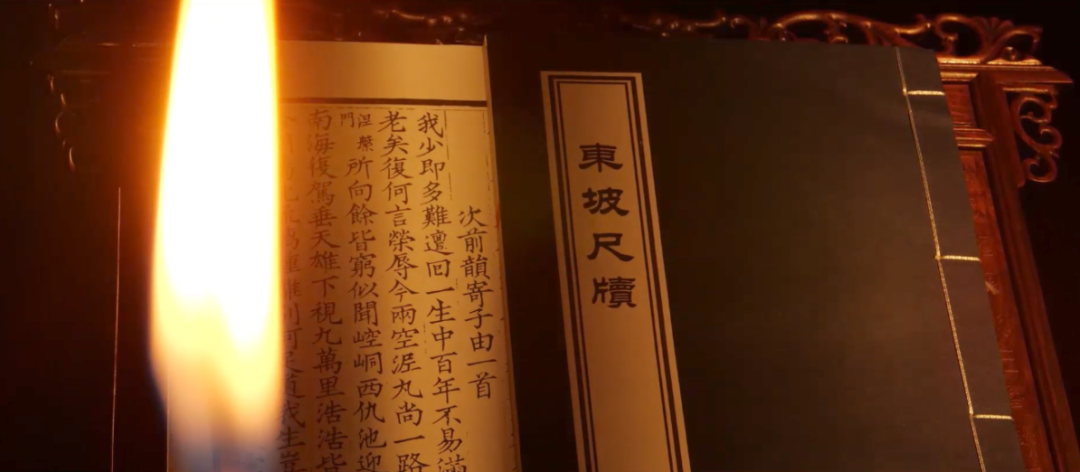 東坡尺牘
次前韻寄子由一首
我少即多難邅回一生中百年不易滿
老矣復何言榮辱今兩空泥丸尚一路
涅槃門所向餘皆窮似聞崆峒西仇池迎
南海復駕垂天雄下視九萬里浩浩皆
我生